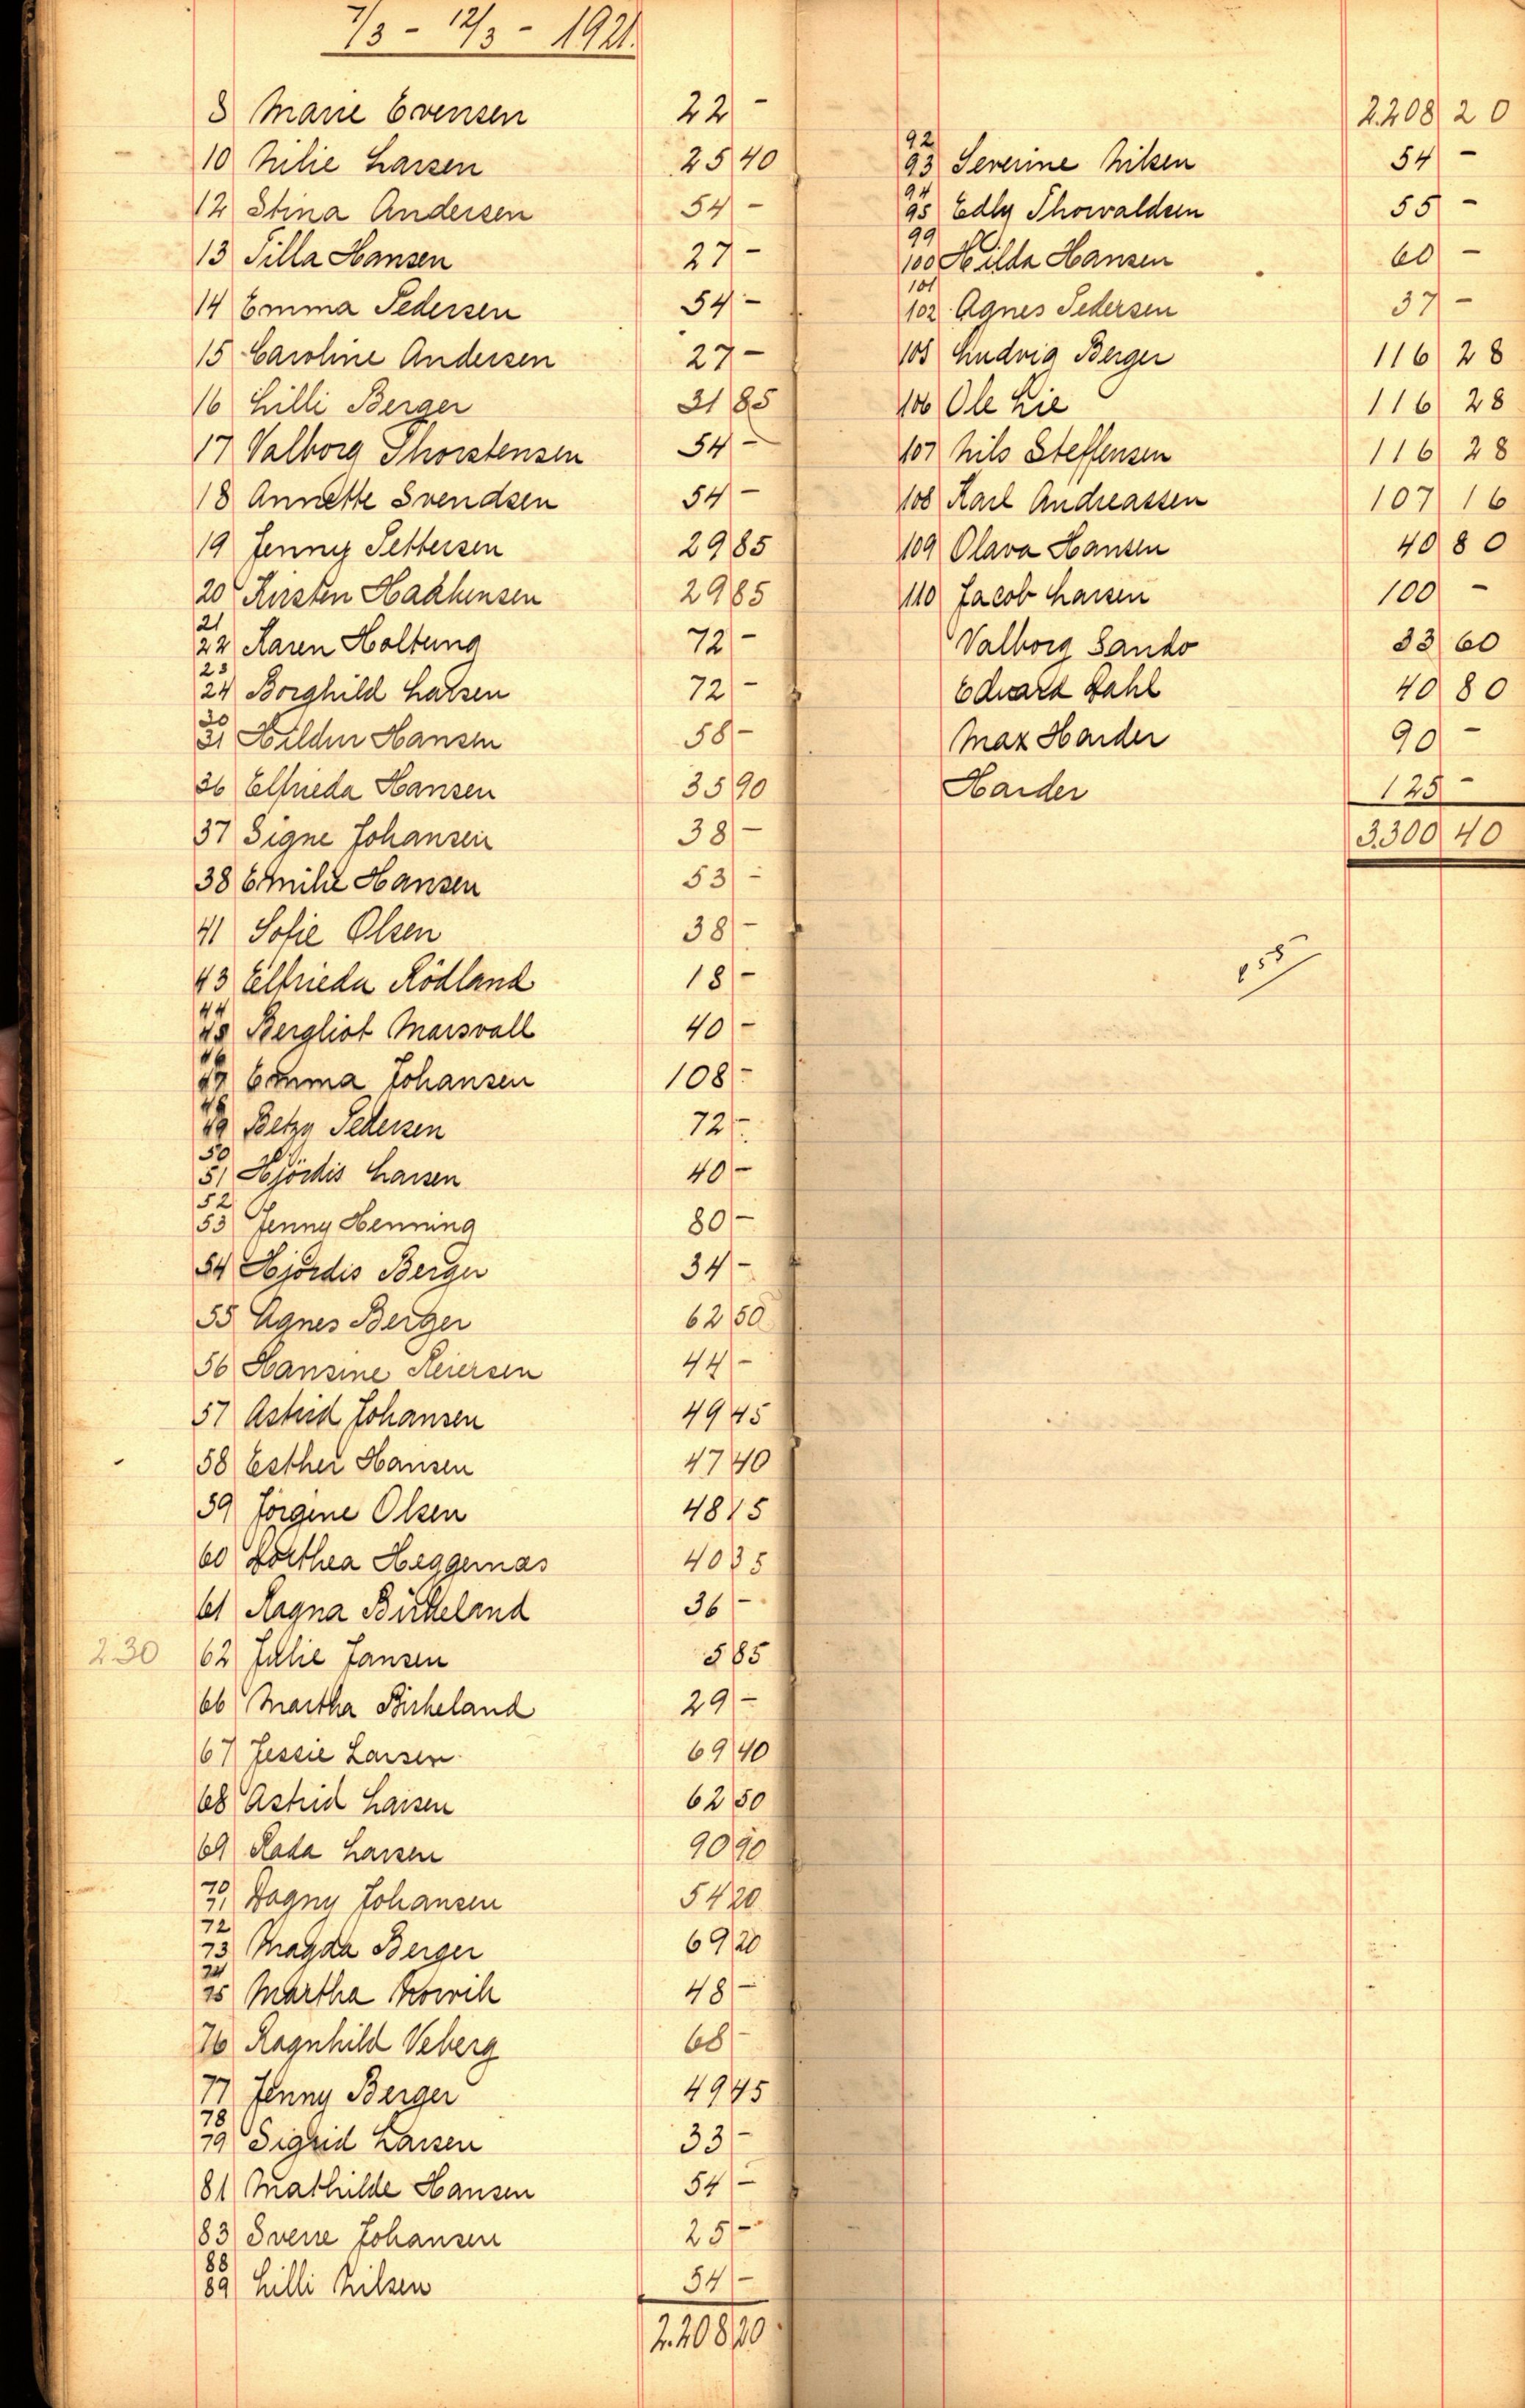 7/3 - 12/3 - 1921.
8 Marie Evensen 22 -
10 Milie Larsen 25 40
12 Stina Andersen 54 -
13 Silla Hansen 27 -
14 Emma Pedersen 54 -
15 Caroline Andersen 27 -
16 Lilli Berger 31 85
17 Valborg Thorstensen 54 -
18 Annette Svendsen 54 -
19 Jenny Pettersen 29 85
20 Kirsten Haakensen 29 85
21
22 Karen Holtung 72 -
23
24 Borghild Larsen 72 -
30
31 Hansen 58 -
36 Elfrieda Hansen 35 90
37 Signe Johansen 38 -
38 Emilie Hansen 53 -
41 Sofie Olsen 38 -
43 Elfrieda Rödland 18 -
44
45 Bergliot Marsvall 40 -
46
47 Emma Johansen 108 -
48
49 Betzy Pedersen 72 -
50
51 Hjördis Larsen 40 -
52
53 Jenny Henning 80 -
54 Hjördis Berger 34 -
55 Agnes Berger 62 50
56 Hansine Reiersen 44 -
57 Astrid Johansen 49 45
58 Esther Hansen 47 40
59 Jörgine Olsen 48 15
60 Dorthea Heggernas 40 35
61 Ragna Birkeland 36 -
2.30 62 Julie Jansen 5 85
66 Martha Birkeland 29 -
67 Jessie Larsen 69 40
68 Astrid Larsen 62 50
69 Rada Larsen 90 90
70
71 Dagny Johansen 54 20
72
73 Magda Berger 69 20
74
75 Martha 48 -
76 Ragnhild Veberg 68 -
77 Jenny Berger 49 45
78
79 Sigrid Larsen 33 -
81 Mathilde Hansen 54 -
83 Sverre Johansen 25 -
88
89 Lilli Nilsen 54 -
2.208 20
2.208 20
92
93 Severine Nilsen 54 -
94
95 Edly Thorvaldsen 55 -
99
100 Hilda Hansen 60 -
101
102 Agnes Pedersen 37 -
105 Ludvig Berger 116 28
106 Ole Lie 116 28
107 Nils Steffensen 116 28
108 Karl Andreassen 107 16
109 Olava Hansen 40 80
110 Jacob Larsen 100 -
Valborg Sando 33 60
Edward Dahl 40 80
Max Harder 90 -
Harder 125 -
3.300 40